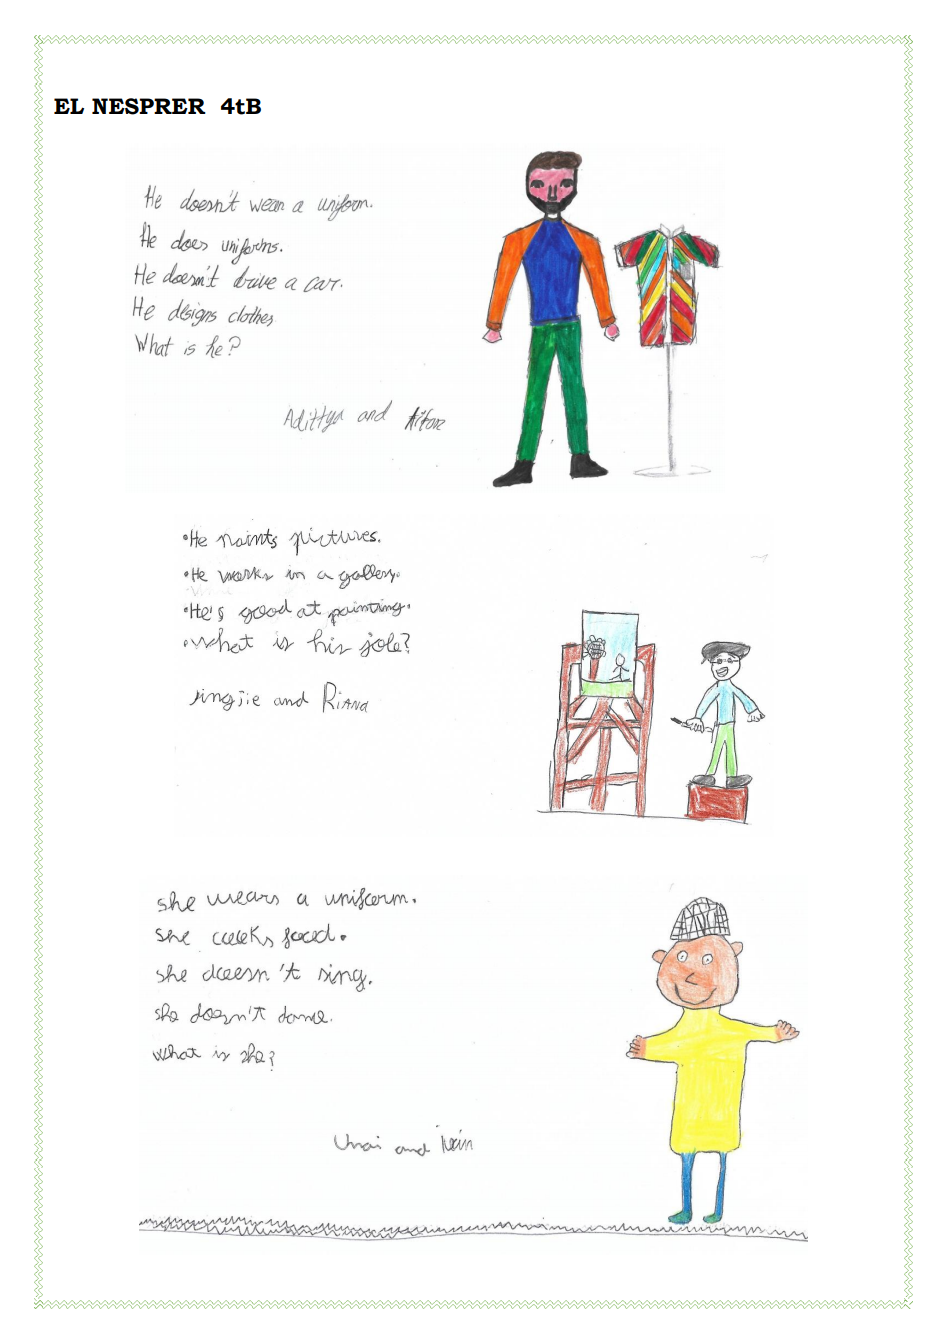 EL NESPRER 4tB
He doesn't wear a uniform.
He does uniforms.
He doesn't drive a car.
He designs clothes
What is he?
Adittya and Aitor
•He paints pictures.
•He works in a gallery.
•He's good at painting.
•What is his jole?
Jingjie and Riana
she wears a uniform.
she cooks food.
she doesn't sing.
she doesn't dance.
what is she?
Unai and Iván